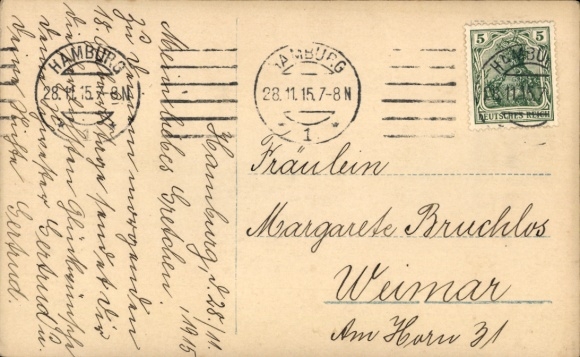 Hamburg, d. 28/11. 1915
Mein liebes Gretchen.
Zu Deinem morgenden
18. Geburtstage sendet Dir
die herzlichsten Glückwünsche
Deine Schwester Gertrud u.
Deine Gertrud.
HAMBURG
28.11.15.7-8N
HAMBURG
28.11.15.7-8N
1
HAMBURG
28.11.15.
5 5
DEUTSCHES REICH
Fräulein
Margarete Bruchlos
Weimar
Am Horn 31